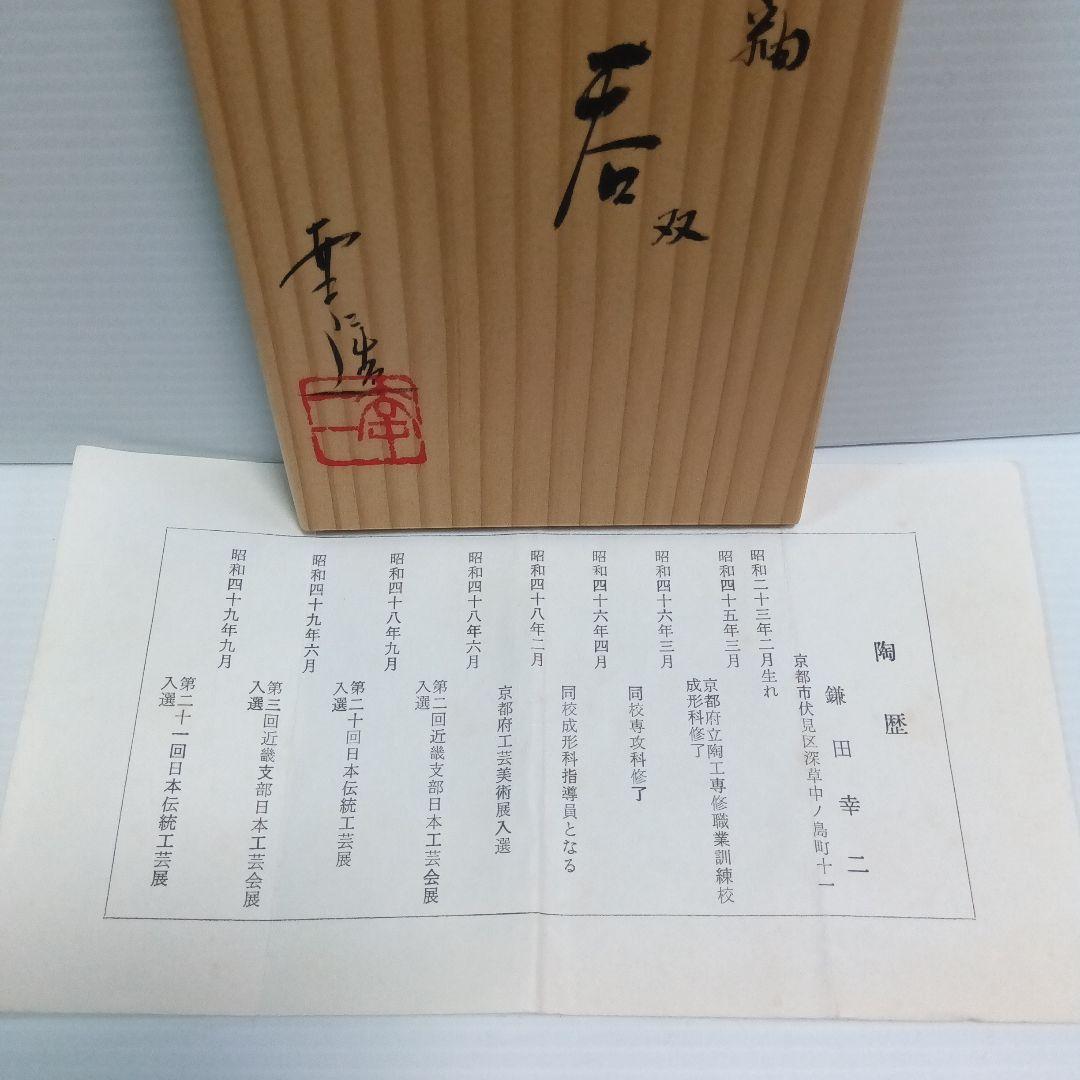 釉
呑
双
幸二造
幸二
陶歴
鎌田幸二
京都市伏見区深草中ノ島町十一
昭和二十三年二月生れ
昭和四十五年三月
京都府立陶工専修職業訓練校
成形科修了
昭和四十六年三月
同校専攻科修了
昭和四十六年四月
同校成形科指導員となる
昭和四十八年二月
京都府工芸美術展入選
昭和四十八年六月
第二回近畿支部日本工芸会展
入選
昭和四十八年九月
第二十回日本伝統工芸展
入選
昭和四十九年六月
第三回近畿支部日本工芸会展
入選
昭和四十九年九月
第二十一回日本伝統工芸展
入選